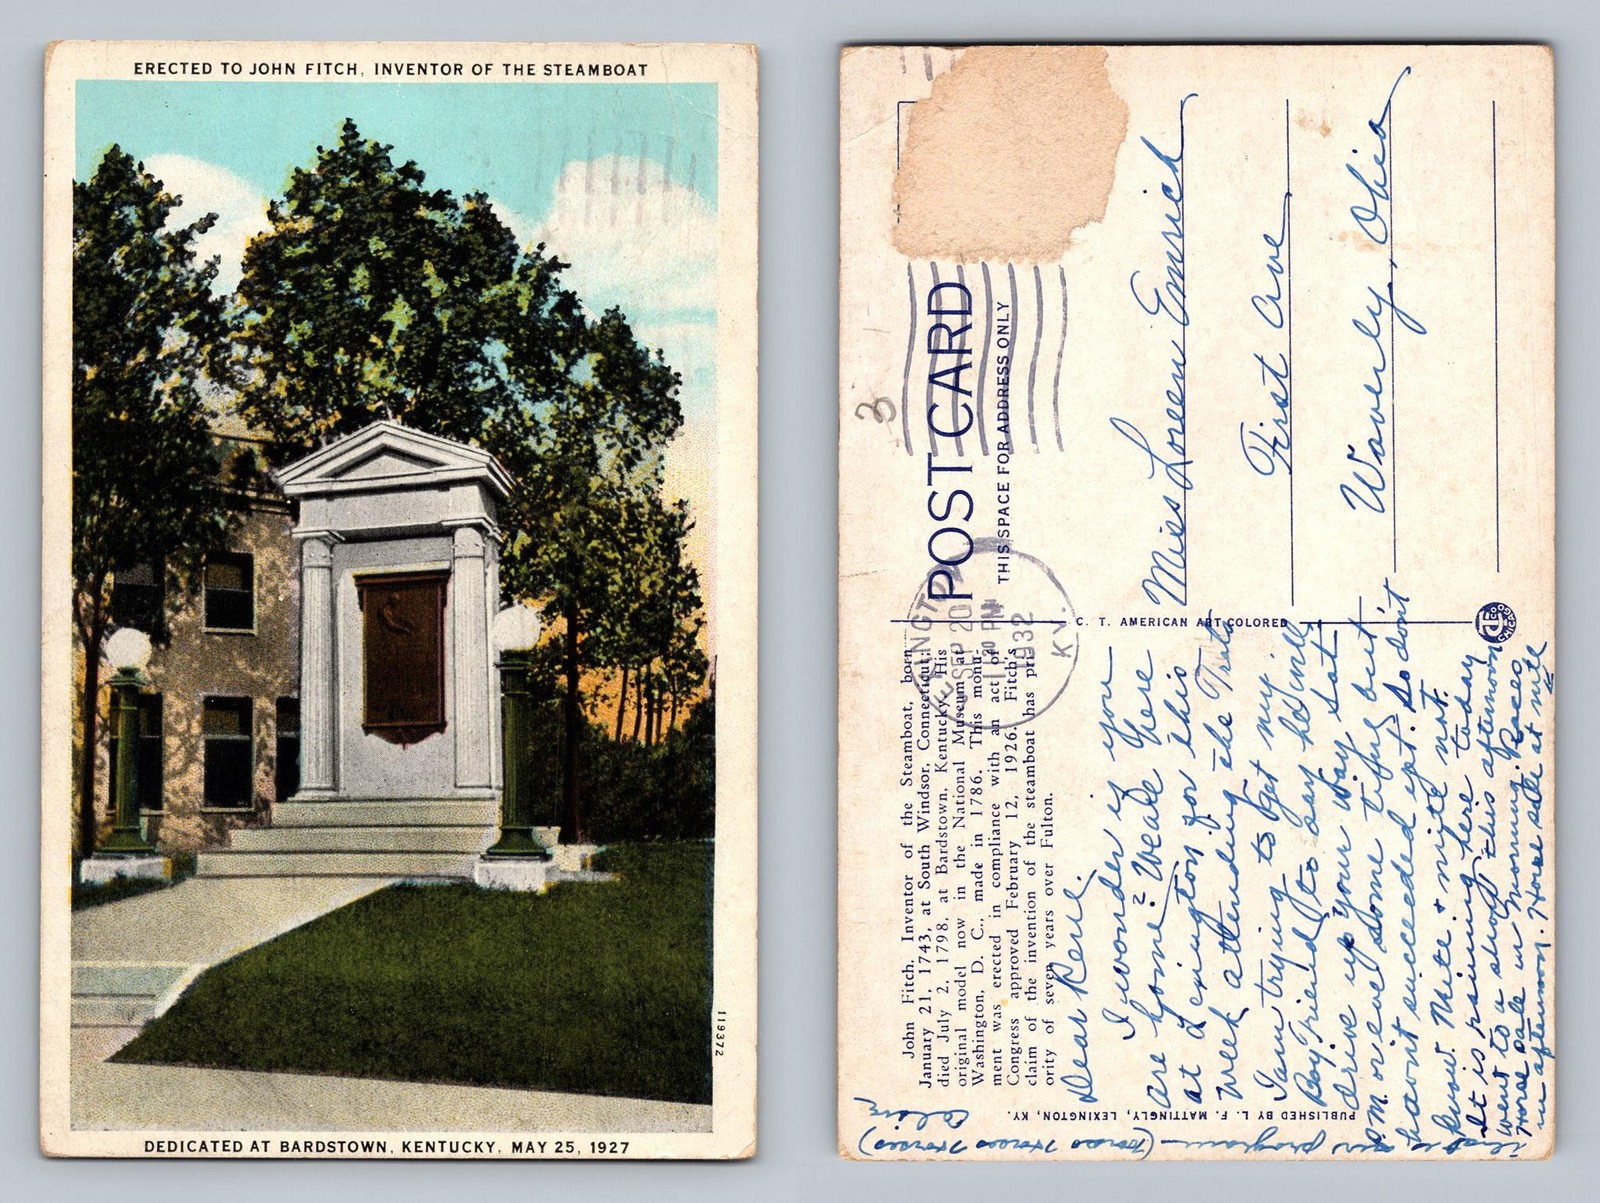 ERECTED TO JOHN FITCH, INVENTOR OF THE STEAMBOAT
119372
DEDICATED AT BARDSTOWN, KENTUCKY, MAY 25, 1927
POST CARD
THIS SPACE FOR ADDRESS ONLY
3
LEXINGTON
SEP 20
1 30 PM
1932
KY.
John Fitch, Inventor of the Steamboat, born
January 21, 1743, at South Windsor, Connecticut;
died July 2, 1798, at Bardstown, Kentucky. His
original model now in the National Museum at
Washington, D. C., made in 1786. This monu-
ment was erected in compliance with an act of
Congress approved February 12, 1926. Fitch's
claim of the invention of the steamboat has pri-
ority of seven years over Fulton.
C. T. AMERICAN ART COLORED
PUBLISHED BY L. F. MATTINGLY, LEXINGTON, KY.
Miss Loreen Emrich
First Ave
Waverly, Ohio
Dear Rene.
I wonder is you
are home? We are here
at Lexington for this
week attending the Trots
I am trying to get my
Boy Friend to say he will
drive up your way Sat
P.M. or eve some time but
havent succeeded yet. So don't
know. Mite & mite not.
It is raining here today
went to a show this afternoon
Horse sale in morning. Races
in afternoon. Horse sale at nite
program - (Horses Horses Horses)